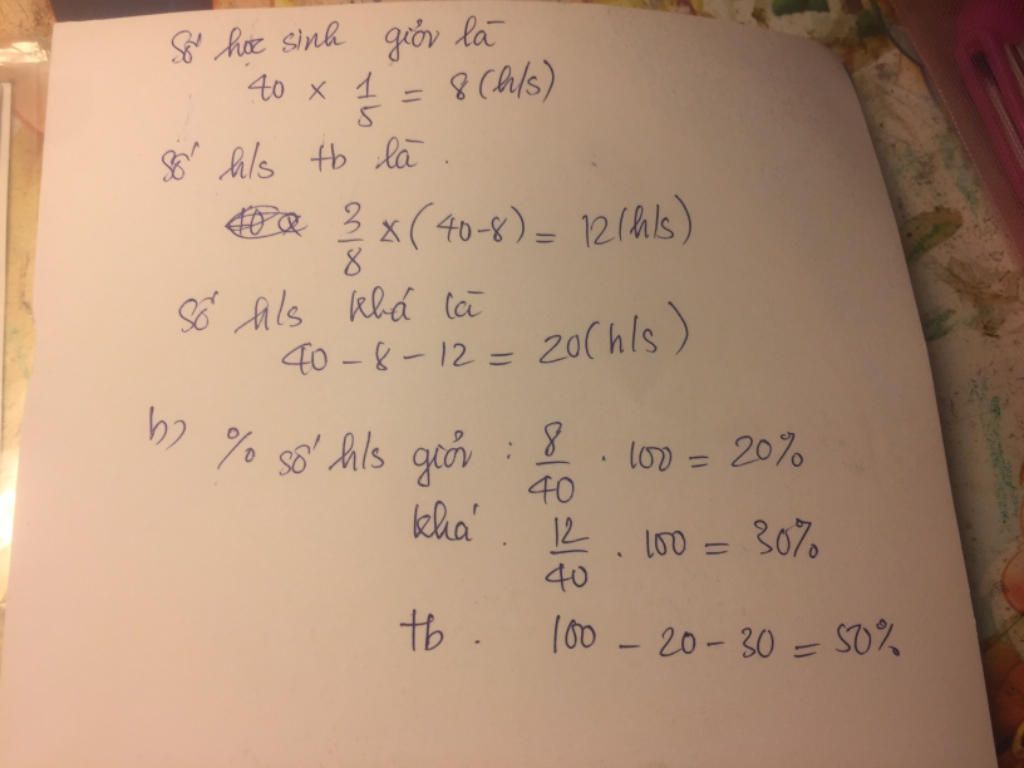 Số học sinh giỏi là
40 × 1/5 = 8 (h/s)
Số h/s tb là.
3/8 × (40-8) = 12 (h/s)
Số h/s khá là
40 - 8 - 12 = 20 (h/s)
b) % số h/s giỏi : 8/40 . 100 = 20%
khá . 12/40 . 100 = 30%
tb . 100 - 20 - 30 = 50%